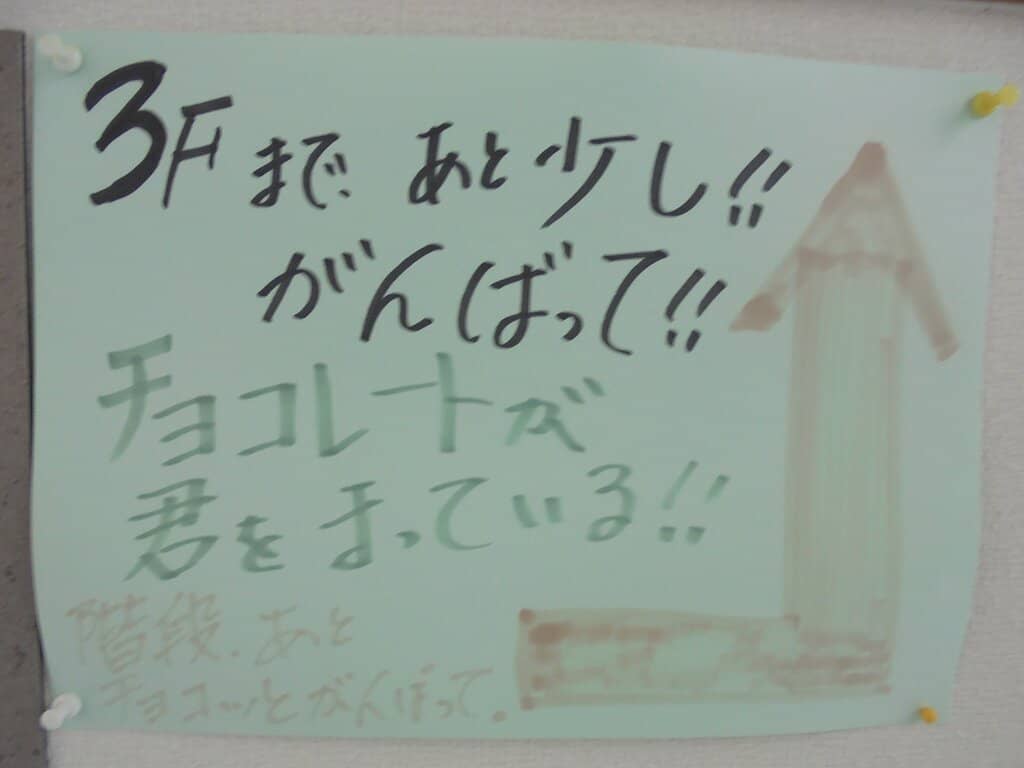 3Fまで、あと少し!!
がんばって!!
チョコレートが
君をまっている!!
階段、あと
チョコッとがんばって。